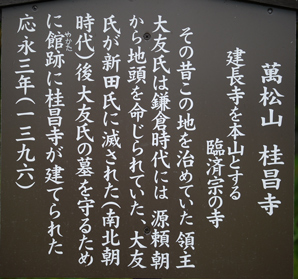 萬松山 桂昌寺
建長寺を本山とする
臨済宗の寺
その昔この地を治めていた領主
大友氏は鎌倉時代には源頼朝
から地頭を命じられていた、大友
氏が新田氏に滅された(南北朝
時代)後大友氏の墓を守るため
に館跡に桂昌寺が建てられた
やかた
応永三年(一三九六)